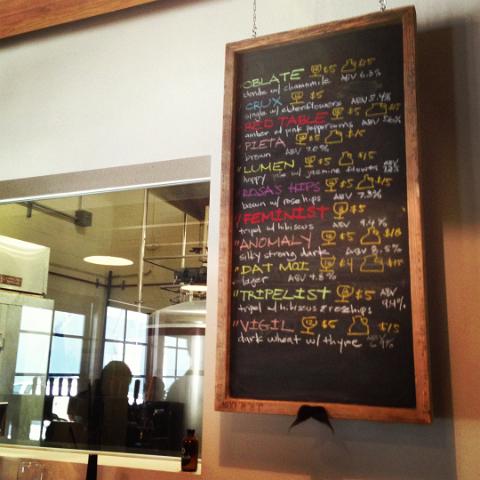 OBLATE $5 $15
blonde w/ chamomile ABV 6.3%
CRUX $5
single w/ elderflowers ABV 5.4%
RED TABLE $5 $15
amber w/ pink peppercorns ABV
PIETA $5 $15
brown ABV 7.0%
LUMEN $5 $15
hoppy w/ jasmine flowers ABV
ROSA'S HIPS $5 $15
brown w/ rose hips ABV 7.3%
FEMINIST $5
tripel w/ hibiscus ABV 9.4%
ANOMALY $5 $18
silky strong dark ABV 8.5%
DAT MOI $4 $15
lager ABV 4.8%
TRIPELIST $5 ABV
tripel w/ hibiscus & rosehips 9.4%
VIGIL $5 $15
dark wheat w/ thyme ABV